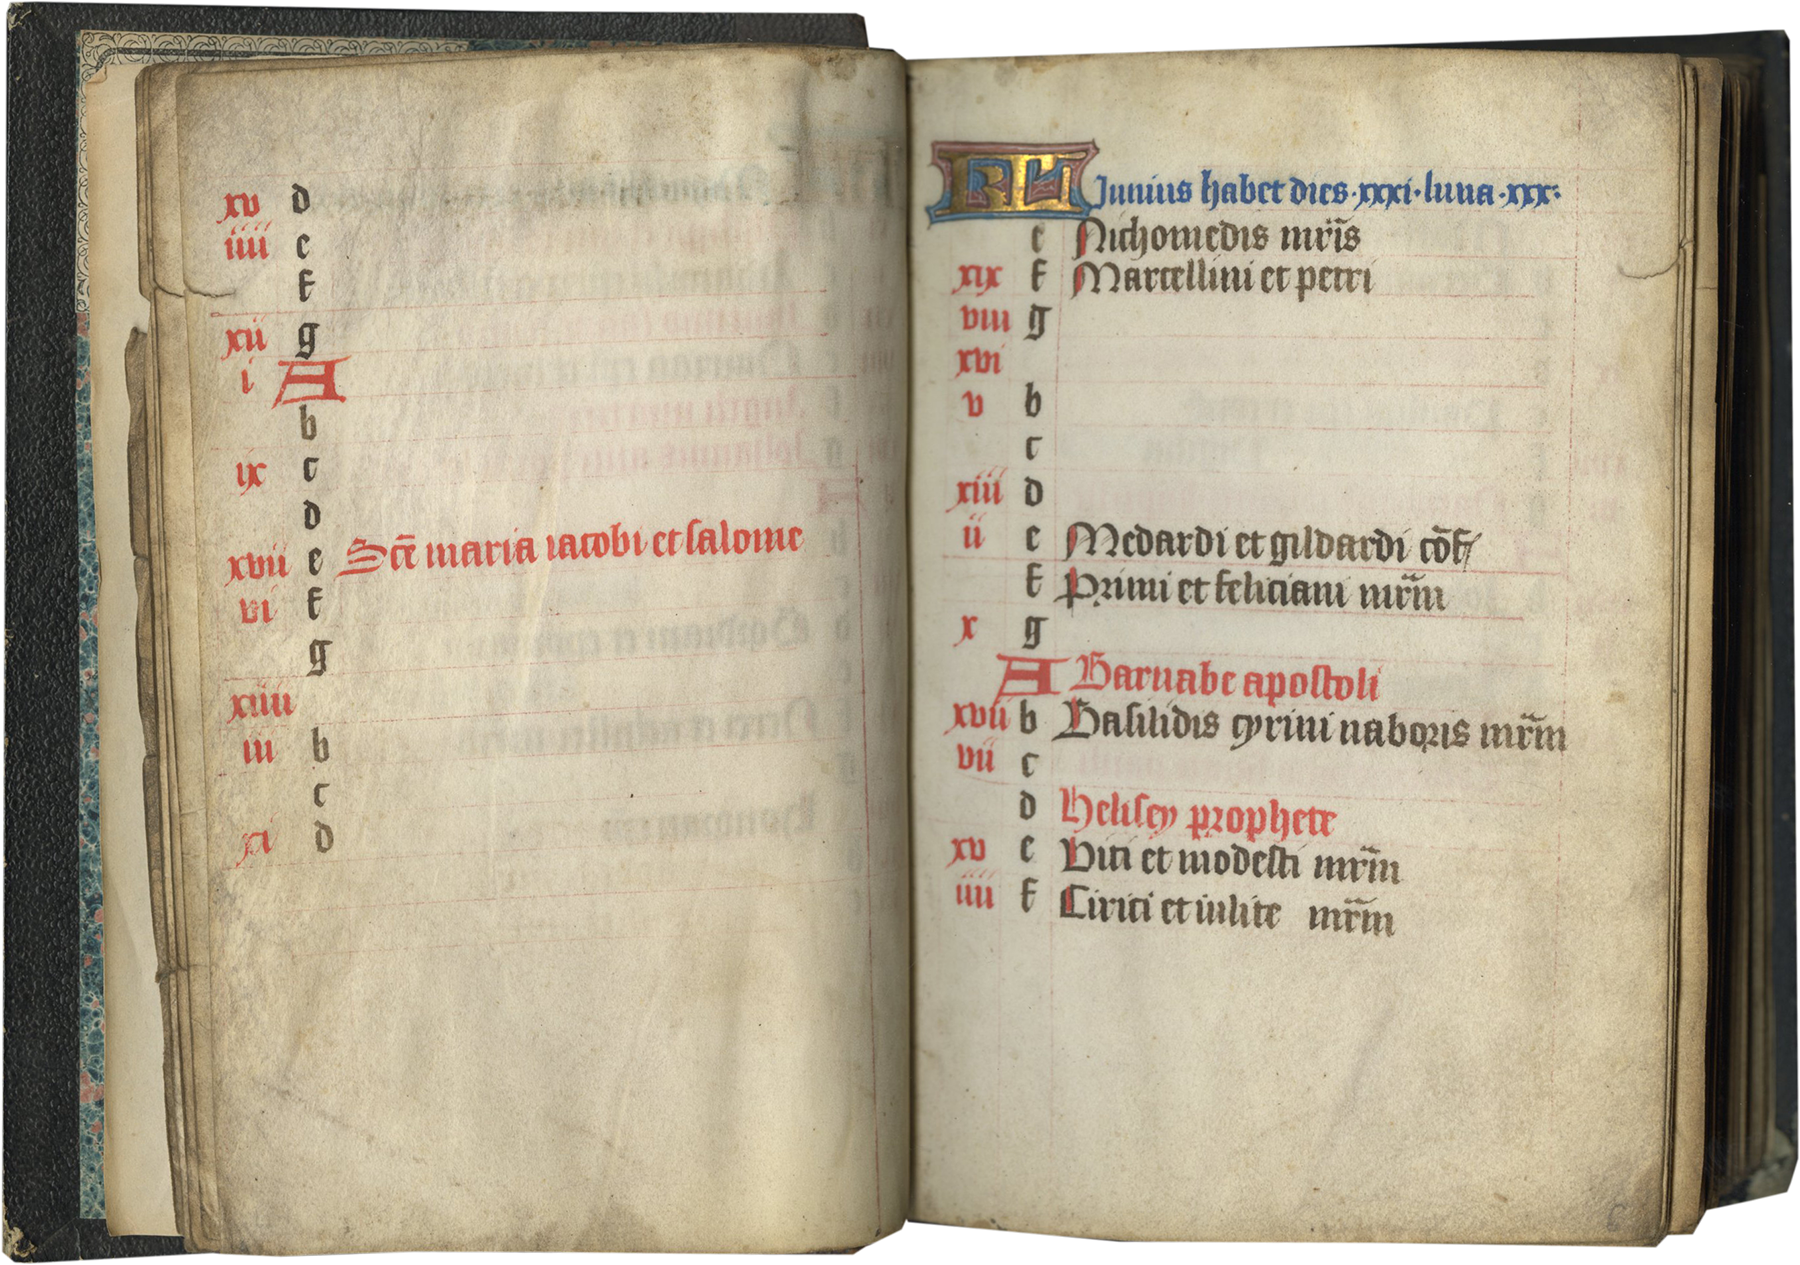 xv d
iiii e
f
xii g
i A
b
ix c
d
xvii e Scē maria iacobi et salome
vi f
g
xiiii
iii b
c
xi d
KL Junius habet dies·xxxi·luna·xxx·
e Nichomedis mr̄is
xix f Marcellini et petri
viii g
xvi
v b
c
xiii d
ii e Medardi et gildardi cōf
f Primi et feliciani mr̄m
x g
A Barnabe apostoli
xviii b Basilidis cyrini naboris mr̄m
vii c
d Helisey prophete
xv e Viti et modesti mr̄m
iiii f Cirici et iulite mr̄m
6